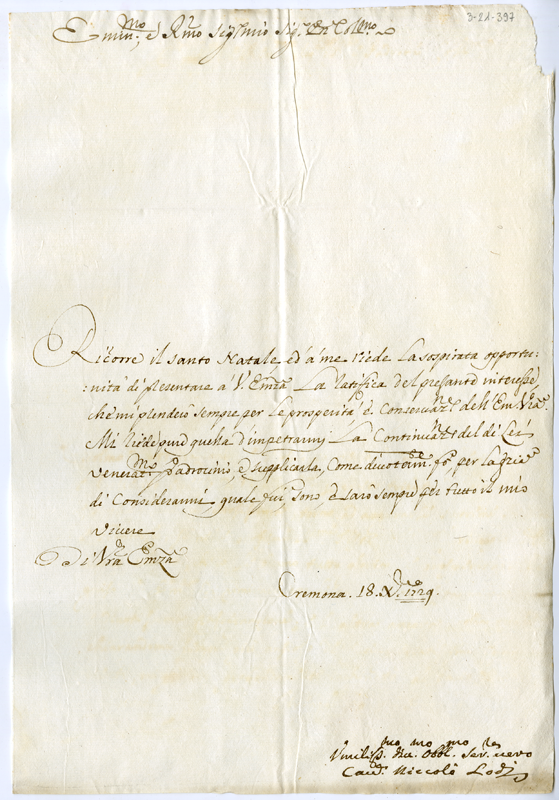 3-21-397
Emin.mo, e Rmo Sig. mio Sig. Pne Collmo
Ricorre il santo Natale, ed à me riede la sospirata opportu:
:nità di presentare a V. Emza La ratifica del pesante interesse,
che mi prendeiò sempre per le prosperità e conservaz.ni dell'Em. Vra.
Mà riede pure quella d'impetrarmi La Continuaz.ne del di Lei
venerat.mo padrocinio, e supplicarla, come divotam.te fò, per la grã
di Considerarmi quale fui, sono, e sarò sempre per tutto il mio
vivere
Di Vra Emza
Cremona. 18. Xbre 1729.
Umiliss.mo Div.mo Obbl.mo Ser.re vero
Cau. Niccolò Lodi